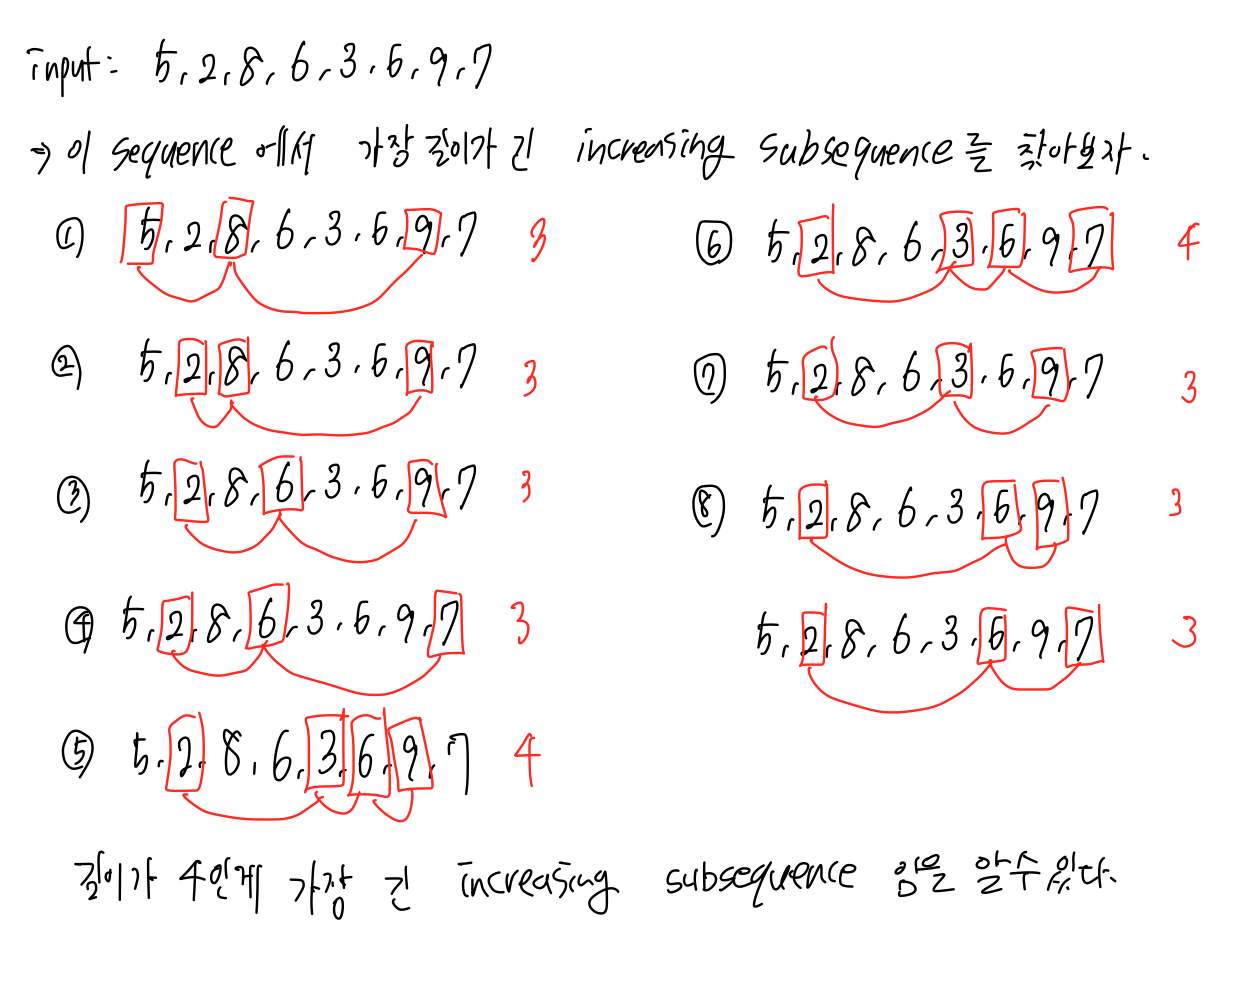 input: 5, 2, 8, 6, 3, 6, 9, 7
→ 이 sequence 에서 가장 길이가 긴 increasing subsequence를 찾아보자.
① 5, 2, 8, 6, 3, 6, 9, 7 3
② 5, 2, 8, 6, 3, 6, 9, 7 3
③ 5, 2, 8, 6, 3, 6, 9, 7 3
④ 5, 2, 8, 6, 3, 6, 9, 7 3
⑤ 5, 2, 8, 6, 3, 6, 9, 7 4
⑥ 5, 2, 8, 6, 3, 6, 9, 7 4
⑦ 5, 2, 8, 6, 3, 6, 9, 7 3
⑧ 5, 2, 8, 6, 3, 6, 9, 7 3
5, 2, 8, 6, 3, 6, 9, 7 3
길이가 4인게 가장 긴 increasing subsequence 임을 알수있다.